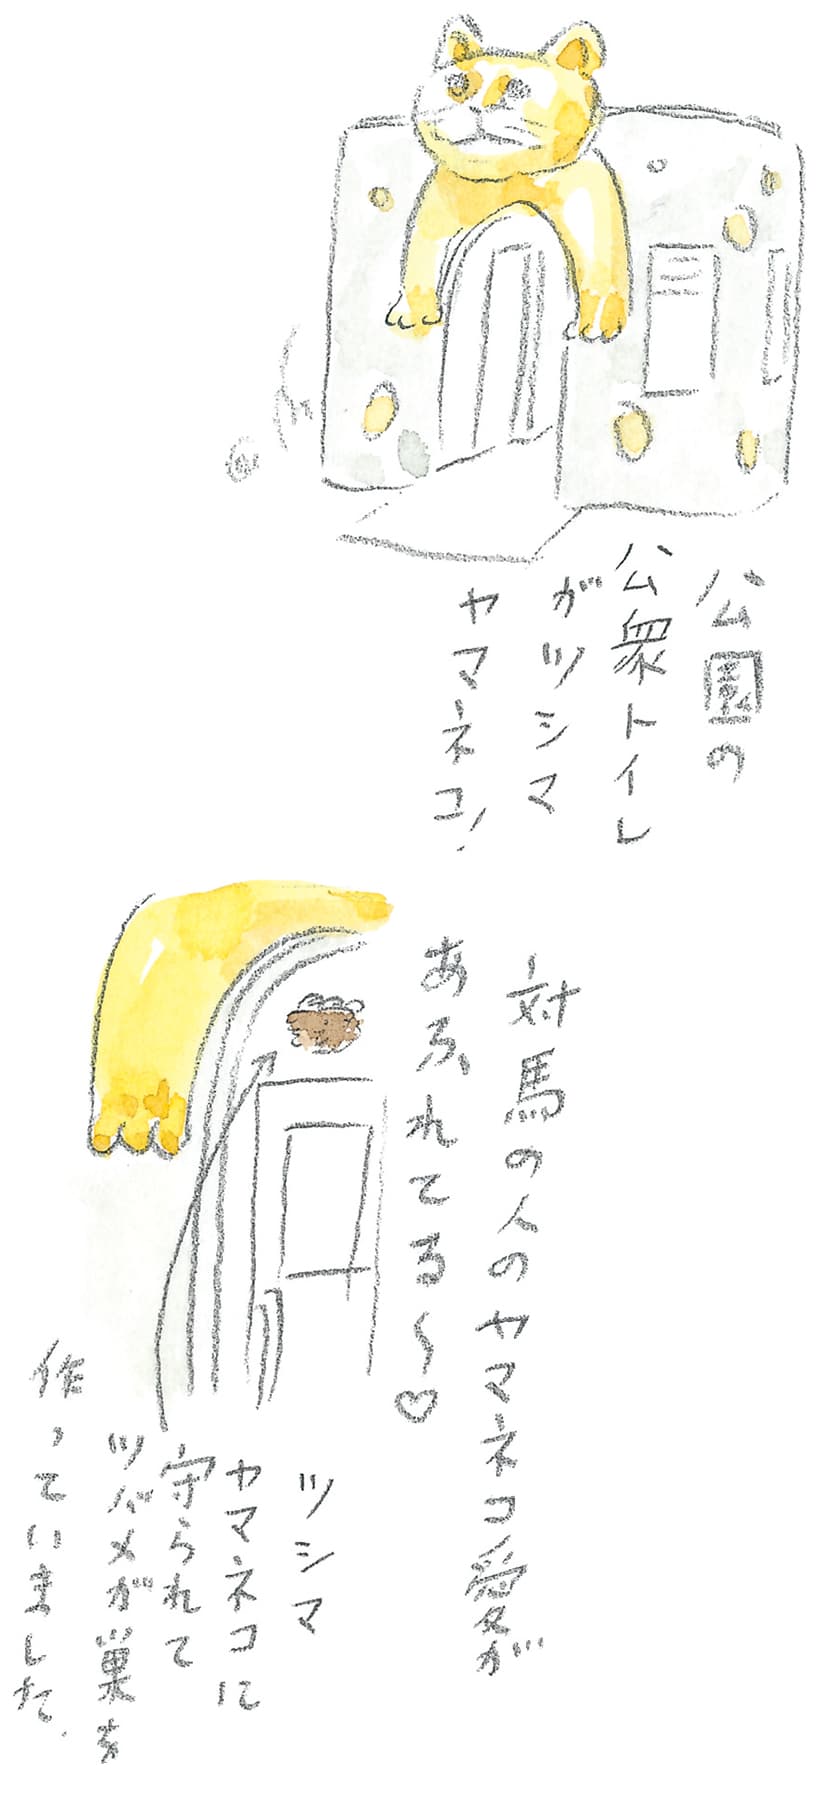 公園の
公衆トイレ
がツシマ
ヤマネコ!
対馬の人のヤマネコ愛が
あふれてる〜♡
ツシマ
ヤマネコに
守られて
ツバメが巣を
作っていました.